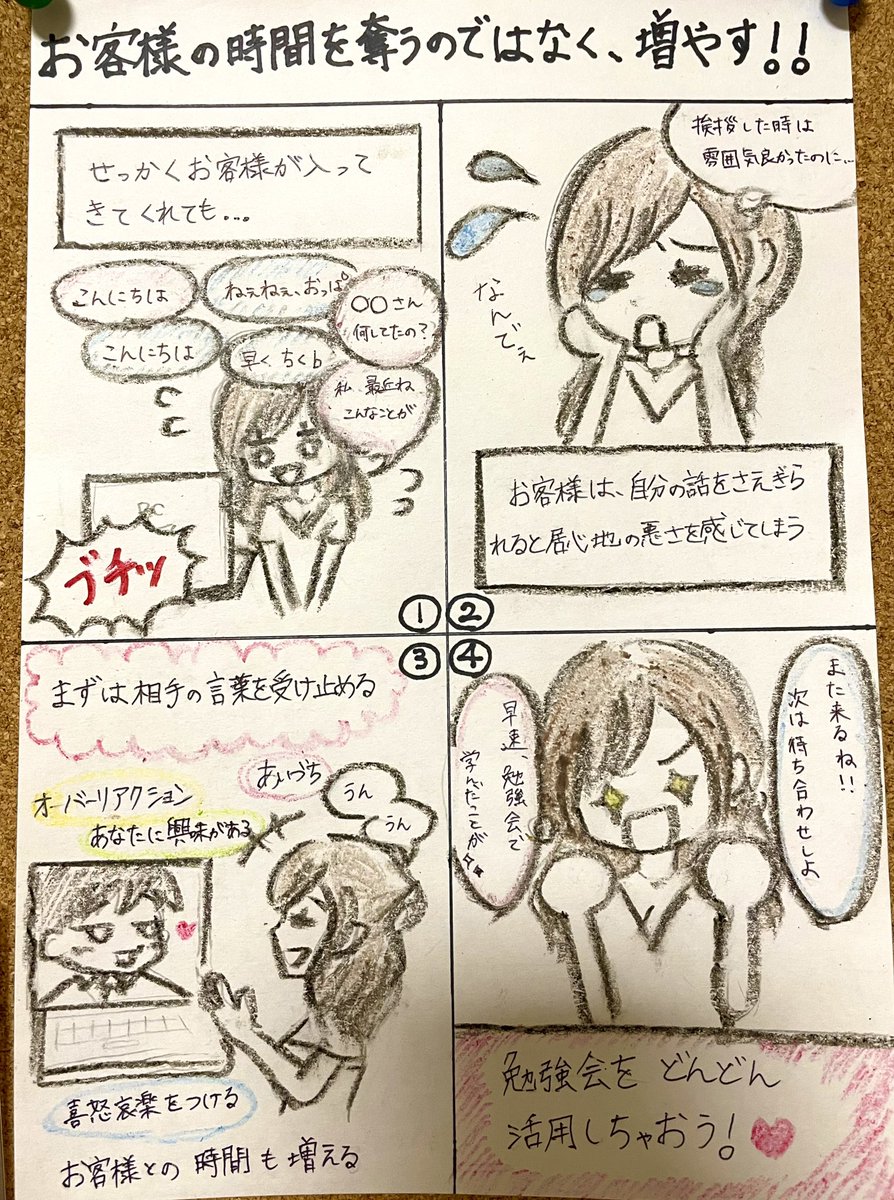 お客様の時間を奪うのではなく、増やす!!
せっかくお客様が入って
きてくれても...
こんにちは
ねぇねぇ、おっぱ
○○さん
何してたの?
こんにちは
早く、ちくb
私、最近ね
こんなことが
PC
ブチッ
①
挨拶した時は
雰囲気良かったのに...
なんでぇ
お客様は、自分の話をさえぎら
れると居心地の悪さを感じてしまう
②
③
まずは相手の言葉を受け止める
あいづち
オーバーリアクション
あなたに興味がある
うん
うん
喜怒哀楽をつける
お客様との時間も増える
④
また来るね!!
次は待ち合わせしよ
早速、勉強会で
学んだことが
勉強会をどんどん
活用しちゃおう!